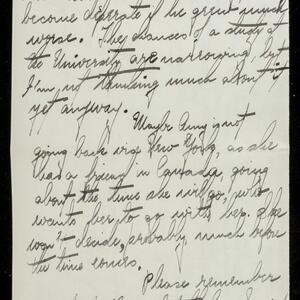 become desperate if he great much
worse. The chances of a study at
the University are narrowing, but
I'm not thinking much about it
yet anyway.
Maybe Amy is not
going back via New York, as she
has a friend in Canada, going
about the time she will go, who
wants her to go with her. She
won't decide, probably, much before
the time comes.
Please remember